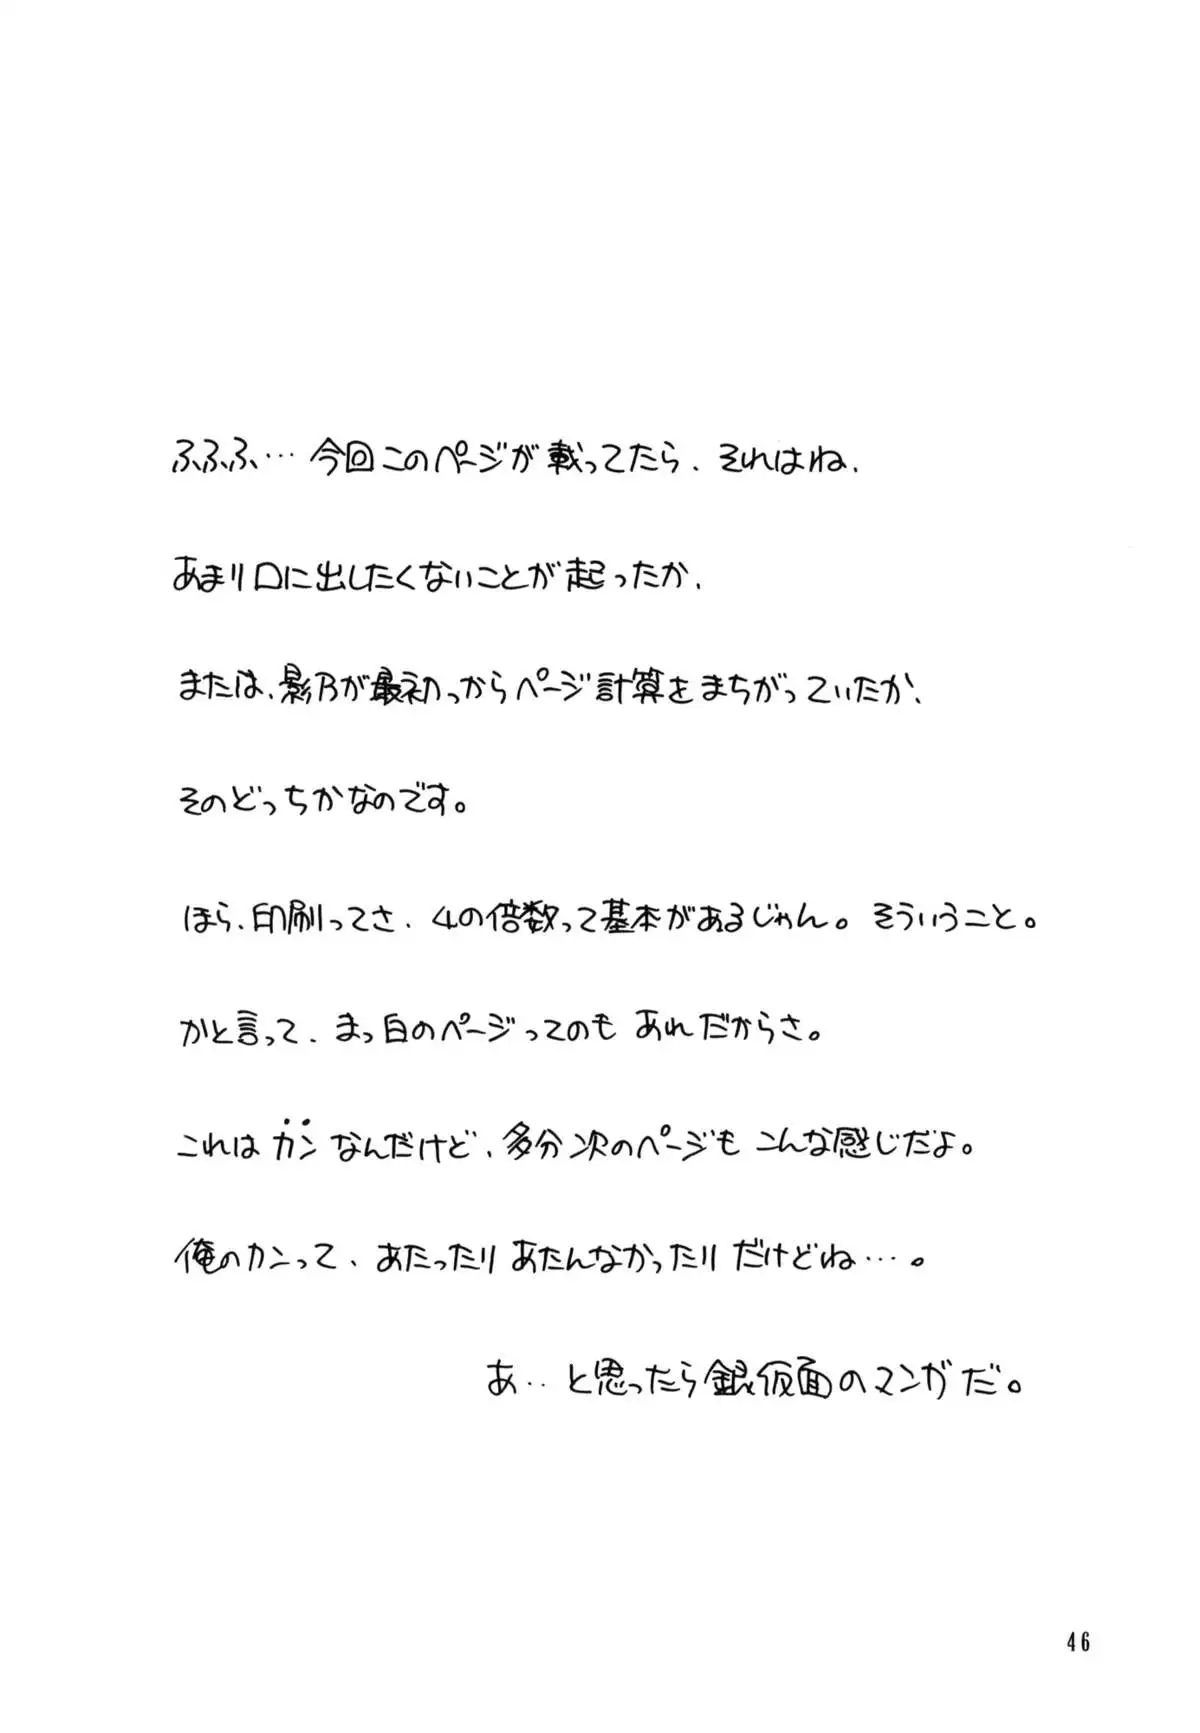 ふふふ…今回このページが載ってたら、それはね、
あまり口に出したくないことが起ったか、
または、影乃が最初っからページ計算をまちがっていたか、
そのどっちかなのです。
ほら、印刷ってさ、4の倍数って基本があるじゃん。そういうこと。
かと言って、まっ白のページってのもあれだからさ。
これはカンなんだけど、多分次のページもこんな感じだよ。
俺のカンって、あたったりあたんなかったりだけどね…。
あ‥と思ったら銀仮面のマンガだ。
46